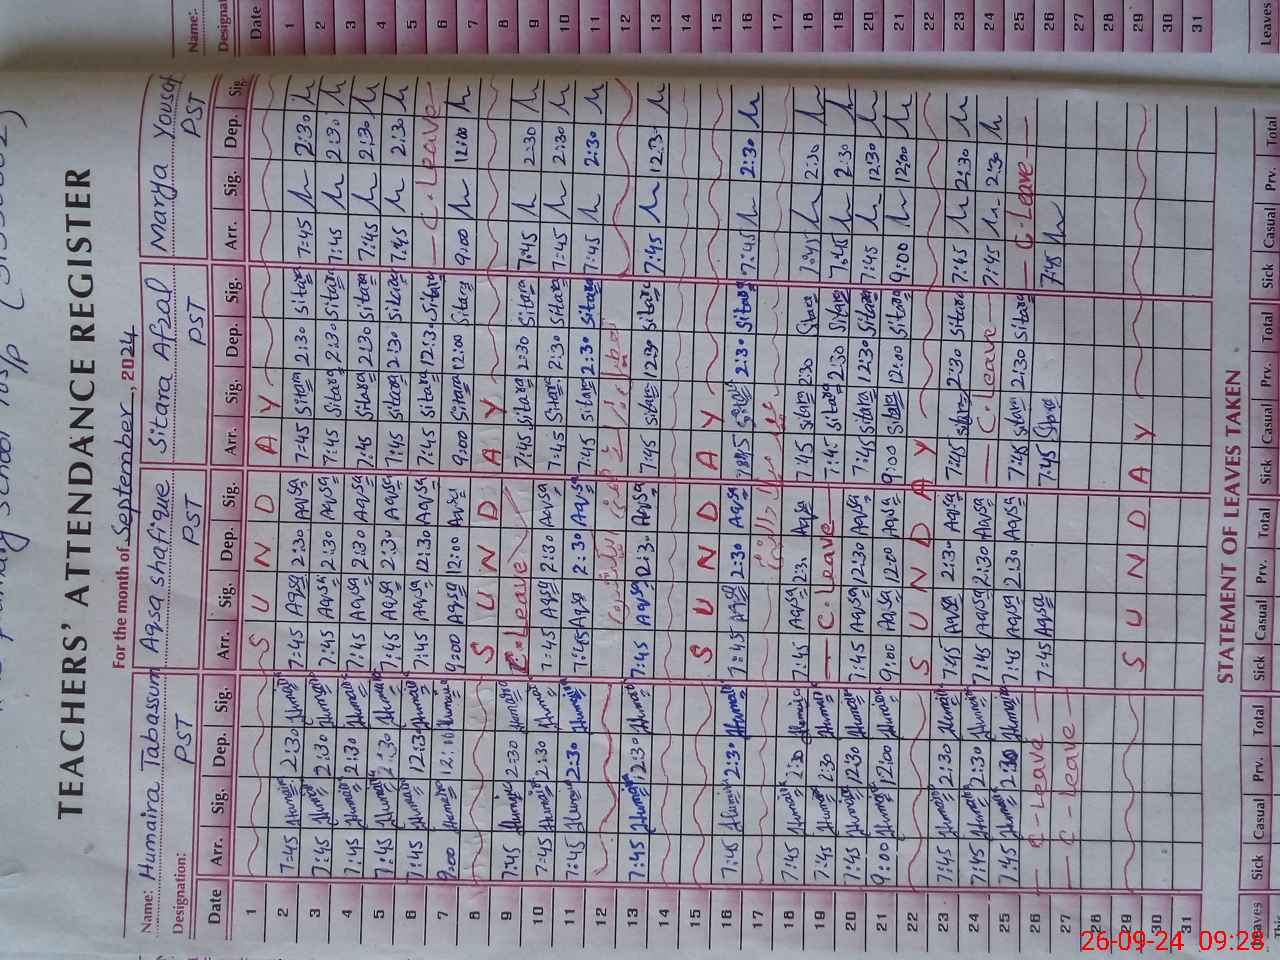 TEACHERS' ATTENDANCE REGISTER
For the month of September, 2024
Name: Humaira Tabassum Aqsa shafique Sitara Afzal Marya Yousaf
Designation: PST PST PST PST
Date Arr. Sig. Dep. Sig. Arr. Sig. Dep. Sig. Arr. Sig. Dep. Sig. Arr. Sig. Dep. Sig.
1 S U N D A Y
2 7:45 Humaira 2:30 Humaira 7:45 Aqsa 2:30 Aqsa 7:45 Sitara 2:30 Sitara 7:45 2:30
3 7:45 Humaira 2:30 Humaira 7:45 Aqsa 2:30 Aqsa 7:45 Sitara 2:30 Sitara 7:45 2:30
4 7:45 Humaira 2:30 Humaira 7:45 Aqsa 2:30 Aqsa 7:45 Sitara 2:30 Sitara 7:45 2:30
5 7:45 Humaira 2:30 Humaira 7:45 Aqsa 2:30 Aqsa 7:45 Sitara 2:30 Sitara 7:45 2:30
6 7:45 Humaira 12:30 Humaira 7:45 Aqsa 12:30 Aqsa 7:45 Sitara 12:30 Sitara C. Leave
7 9:00 Humaira 12:00 Humaira 9:00 Aqsa 12:00 Aqsa 9:00 Sitara 12:00 Sitara 9:00 12:00
8 S U N D A Y
9 7:45 Humaira 2:30 Humaira C. Leave 7:45 Sitara 2:30 Sitara 7:45 2:30
10 7:45 Humaira 2:30 Humaira 7:45 Aqsa 2:30 Aqsa 7:45 Sitara 2:30 Sitara 7:45 2:30
11 7:45 Humaira 2:30 Humaira 7:45 Aqsa 2:30 Aqsa 7:45 Sitara 2:30 Sitara 7:45 2:30
12
13 7:45 Humaira 12:30 Humaira 7:45 Aqsa 12:30 Aqsa 7:45 Sitara 12:30 Sitara 7:45 12:30
14
15 S U N D A Y
16 7:45 Humaira 2:30 Humaira 7:45 Aqsa 2:30 Aqsa 7:45 Sitara 2:30 Sitara 7:45 2:30
17
18 7:45 Humaira 2:30 Humaira 7:45 Aqsa 2:30 Aqsa 7:45 Sitara 2:30 Sitara 7:45 2:30
19 7:45 Humaira 2:30 Humaira C. Leave 7:45 Sitara 2:30 Sitara 7:45 2:30
20 7:45 Humaira 12:30 Humaira 7:45 Aqsa 12:30 Aqsa 7:45 Sitara 12:30 Sitara 7:45 12:30
21 9:00 Humaira 12:00 Humaira 9:00 Aqsa 12:00 Aqsa 9:00 Sitara 12:00 Sitara 9:00 12:00
22 S U N D A Y
23 7:45 Humaira 2:30 Humaira 7:45 Aqsa 2:30 Aqsa 7:45 Sitara 2:30 Sitara 7:45 2:30
24 7:45 Humaira 2:30 Humaira 7:45 Aqsa 2:30 Aqsa C. Leave 7:45 2:30
25 7:45 Humaira 2:30 Humaira 7:45 Aqsa 2:30 Aqsa 7:45 Sitara 2:30 Sitara C. Leave
26 C - Leave 7:45 Aqsa 7:45 Sitara 7:45
27 C - Leave
28
29 S U N D A Y
30
31
STATEMENT OF LEAVES TAKEN
Leaves Sick Casual Prv. Total Sick Casual Prv. Total Sick Casual Prv. Total Sick Casual Prv. Total
Name:
Designat
Date
1
2
3
4
5
6
7
8
9
10
11
12
13
14
15
16
17
18
19
20
21
22
23
24
25
26
27
28
29
30
31
Leaves
26-09-24 09:28